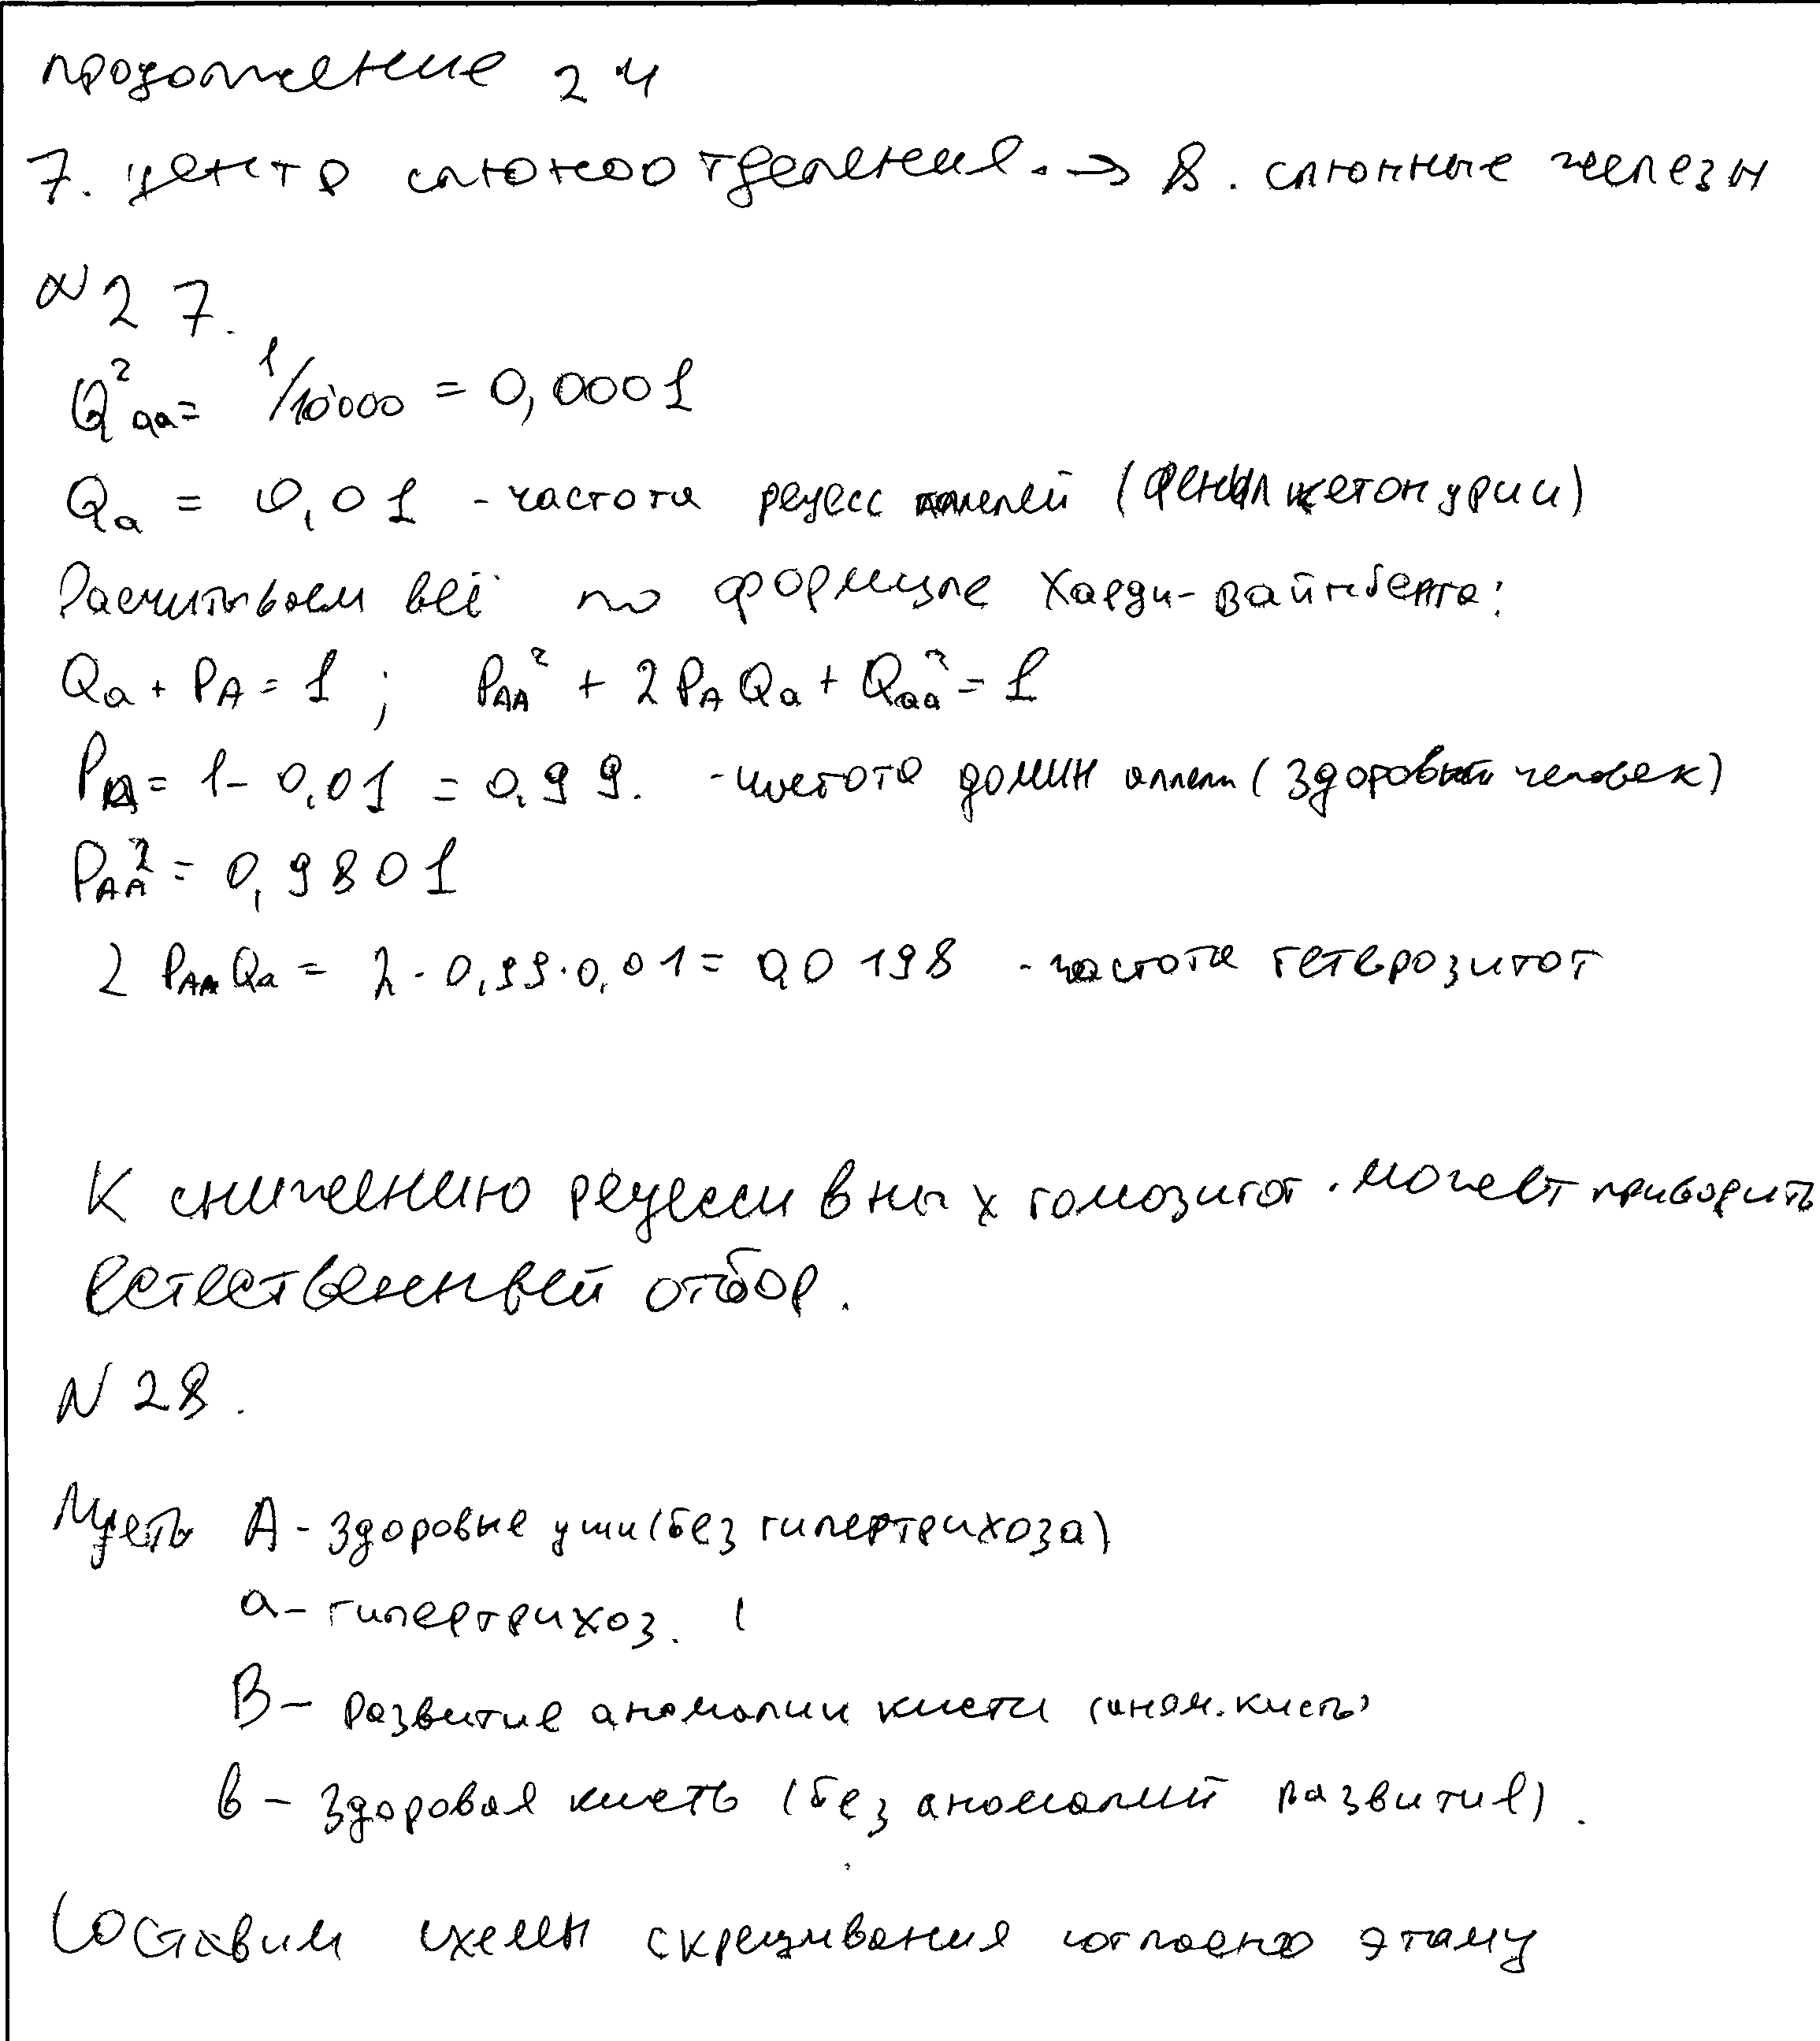 продолжение 24
7. центр слюноотделения. → 8. слюнные железы
N 27.
Q²aa = 1/10000 = 0,0001
Qa = 0,01 - частота рецесс аллелей (фенилкетонурии)
Расчитываем всё по формуле Харди-Вайнберга:
Qa + PA = 1 ; PAA² + 2PAQa + Qaa² = 1
PA = 1 - 0,01 = 0,99. - частота домин аллели (здоровый человек)
PAA² = 0,9801
2 PAAQa = 2 · 0,99 · 0,01 = 0,0198 - частота гетерозигот
К снижению рецессивных гомозигот . может приводить
естественный отбор.
N 28.
Пусть A - здоровые уши (без гипертрихоза)
a - гипертрихоз. (
B - развитие аномалии кисти (аном. кисть)
b - здоровая кисть (без аномалий развития).
Составим схемы скрещивания согласно этому